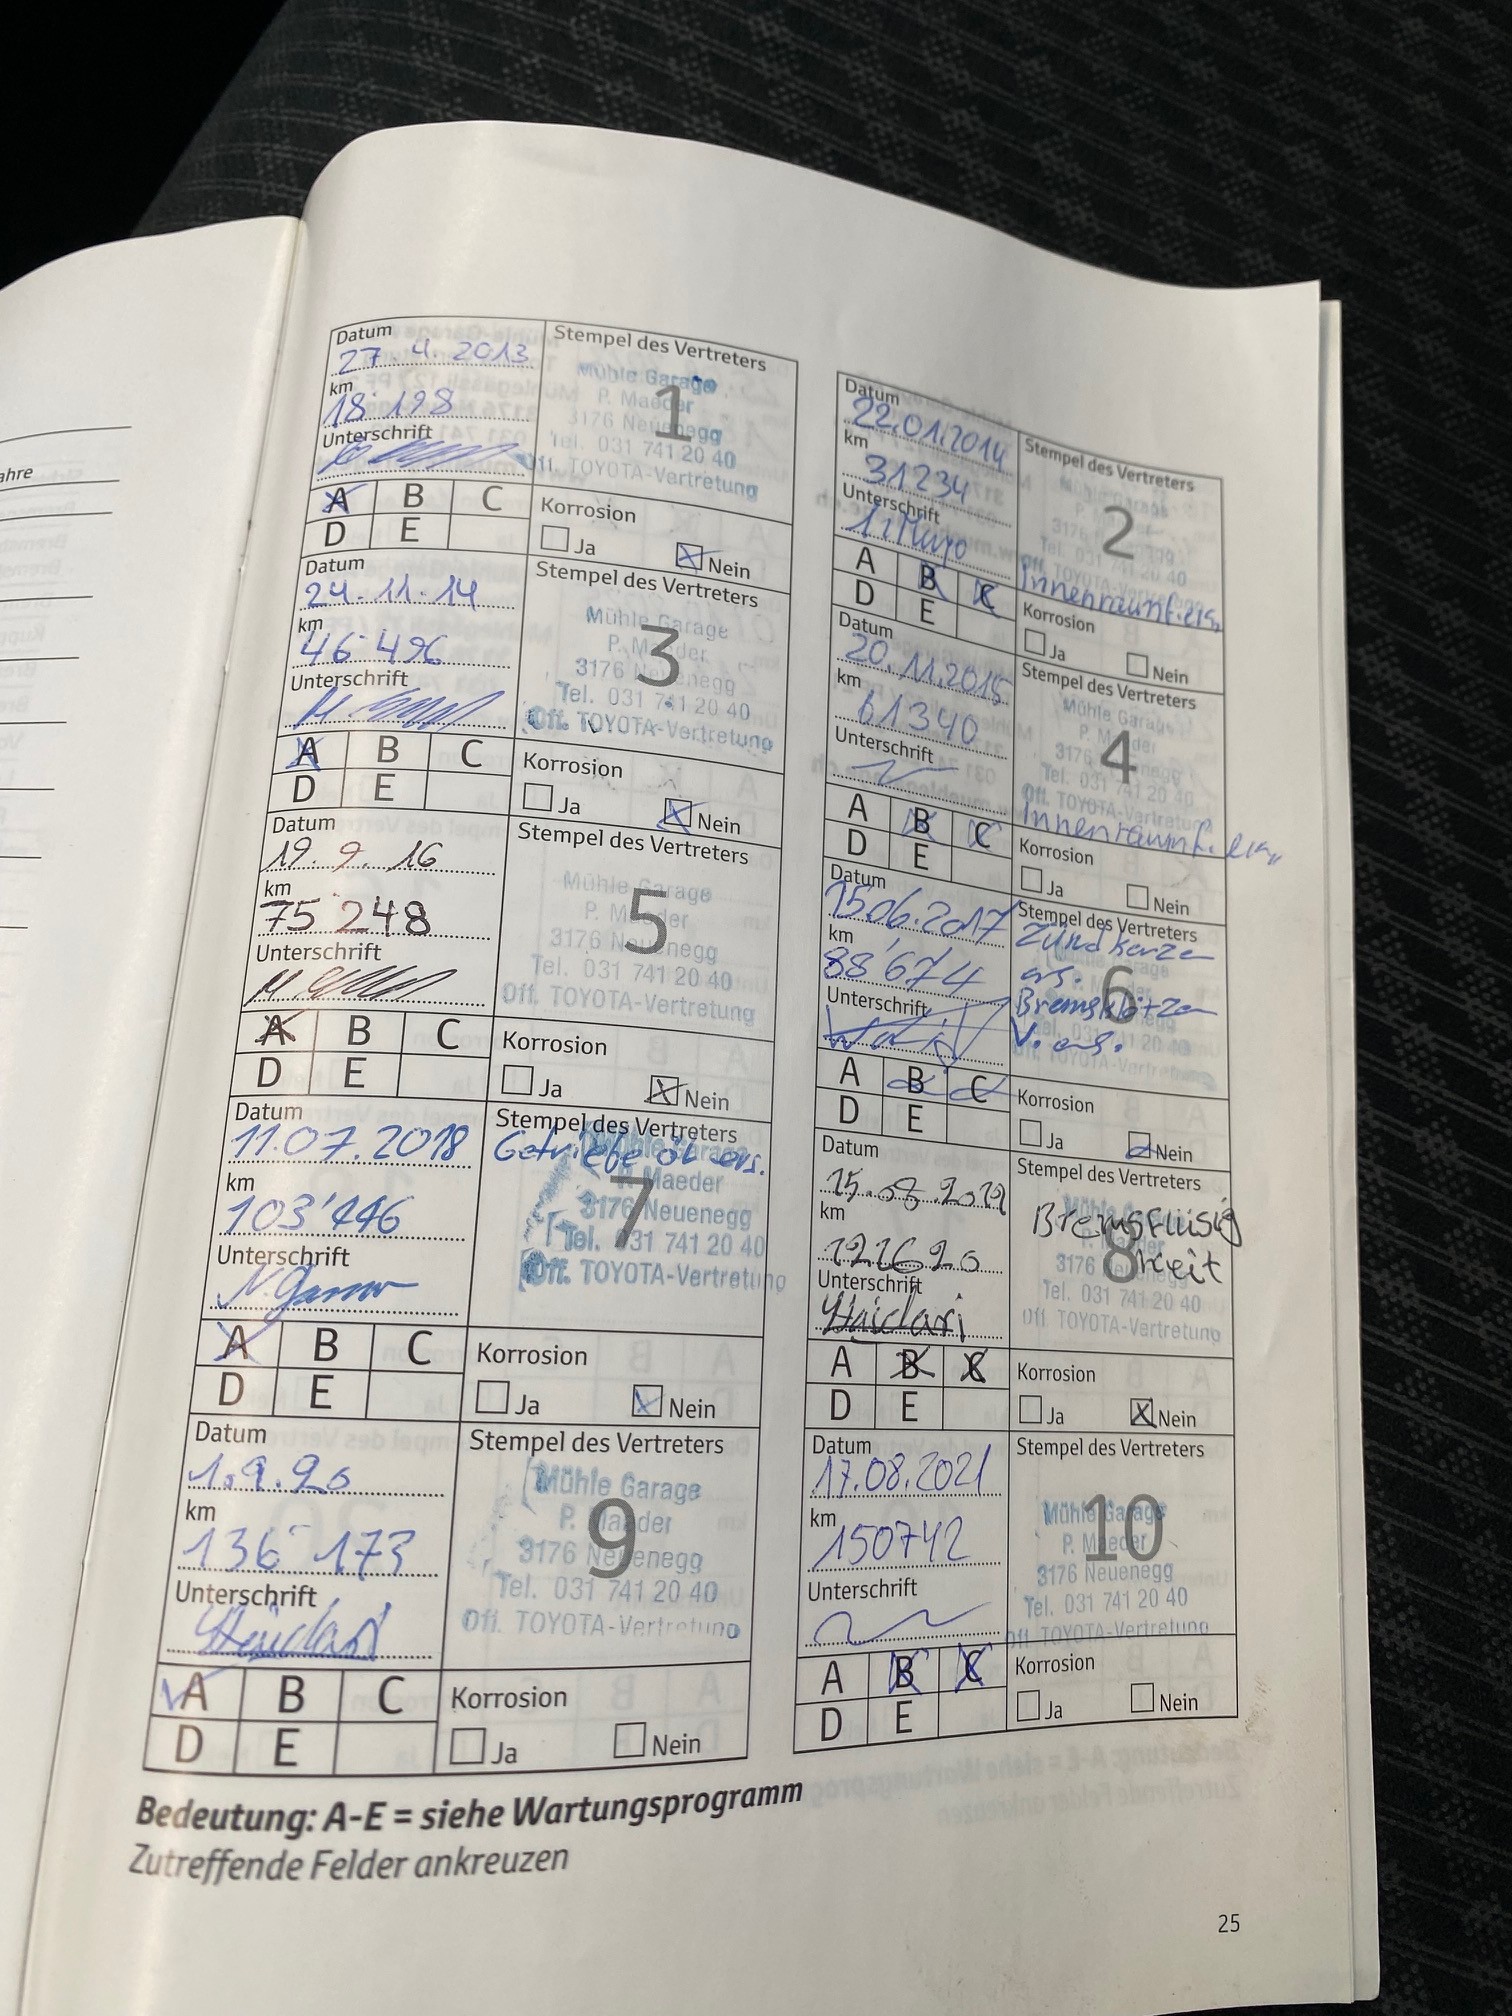 ahre
Datum
27. 4. 2013
km
18'198
Unterschrift
Stempel des Vertreters
1
Mühle Garage
P. Maeder
3176 Neuenegg
Tel. 031 741 20 40
Off. TOYOTA-Vertretung
A B C
D E
Korrosion
Ja Nein
Datum
22.01.2014
km
31234
Unterschrift
Stempel des Vertreters
2
Mühle Garage
3176
Tel. 031 741 20 40
Off. TOYOTA-Vertretung
A B C
D E
Korrosion
Ja Nein
Datum
24.11.14
km
46'496
Unterschrift
Stempel des Vertreters
3
Mühle Garage
P. Maeder
3176 Neuenegg
Tel. 031 741 20 40
Off. TOYOTA-Vertretung
A B C
D E
Korrosion
Ja Nein
Datum
20.11.2015
km
61340
Unterschrift
Stempel des Vertreters
4
Mühle Garage
P. Maeder
3176 Neuenegg
Tel. 031 741 20 40
Off. TOYOTA-Vertretung
A B C
D E
Korrosion
Ja Nein
Datum
19. 9. 16
km
75'248
Unterschrift
Stempel des Vertreters
5
Mühle Garage
P. Maeder
3176 Neuenegg
Tel. 031 741 20 40
Off. TOYOTA-Vertretung
A B C
D E
Korrosion
Ja Nein
Datum
15.06.2017
km
88'674
Unterschrift
Stempel des Vertreters
6
Zündkerze
ers.
Bremsklötze
V. ers.
A B C
D E
Korrosion
Ja Nein
Datum
11.07.2018
km
103'446
Unterschrift
Stempel des Vertreters
7
Getriebe öl ers.
Mühle Garage
P. Maeder
3176 Neuenegg
Tel. 031 741 20 40
Off. TOYOTA-Vertretung
A B C
D E
Korrosion
Ja Nein
Datum
15.08.2019
km
121620
Unterschrift
Haidari
Stempel des Vertreters
8
Bremsflüsig
keit
3176 Neuenegg
Tel. 031 741 20 40
Off. TOYOTA-Vertretung
A B C
D E
Korrosion
Ja Nein
Datum
1.9.20
km
136'173
Unterschrift
Haidari
Stempel des Vertreters
9
Mühle Garage
P. Maeder
3176 Neuenegg
Tel. 031 741 20 40
Off. TOYOTA-Vertretung
A B C
D E
Korrosion
Ja Nein
Datum
17.08.2021
km
150742
Unterschrift
Stempel des Vertreters
10
Mühle Garage
P. Maeder
3176 Neuenegg
Tel. 031 741 20 40
Off. TOYOTA-Vertretung
A B C
D E
Korrosion
Ja Nein
Bedeutung: A-E = siehe Wartungsprogramm
Zutreffende Felder ankreuzen
25